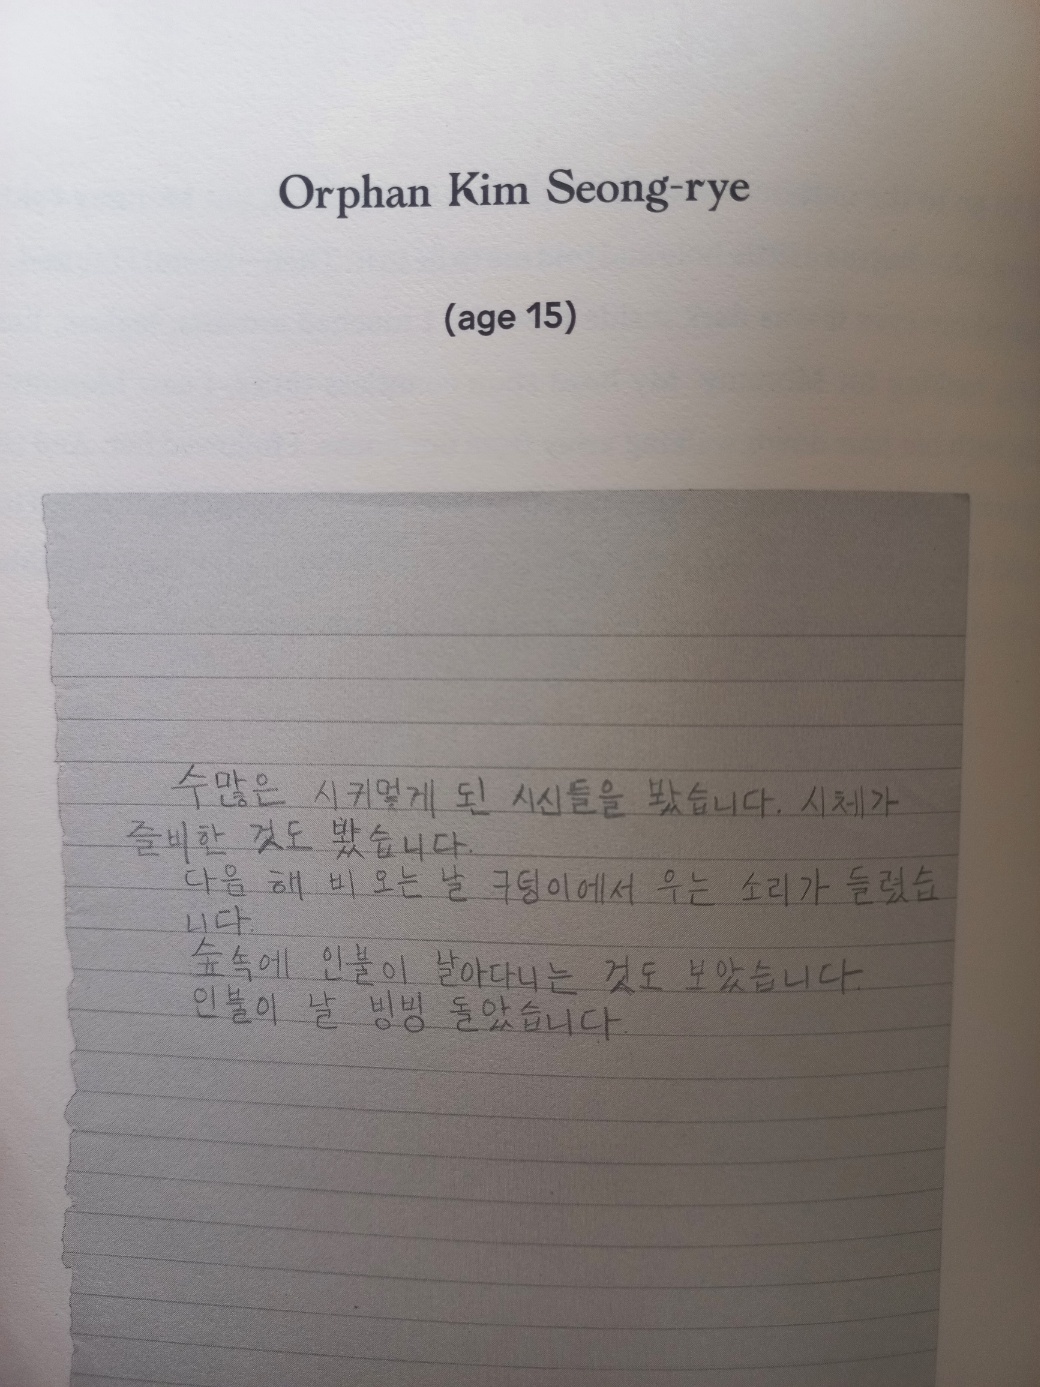 Orphan Kim Seong-rye
(age 15)
수많은 시커멓게 된 시신들을 봤습니다. 시체가
즐비한 것도 봤습니다.
다음 해 비 오는 날 구덩이에서 우는 소리가 들렸습
니다.
숲속에 인불이 날아다니는 것도 보았습니다.
인불이 날 빙빙 돌았습니다.